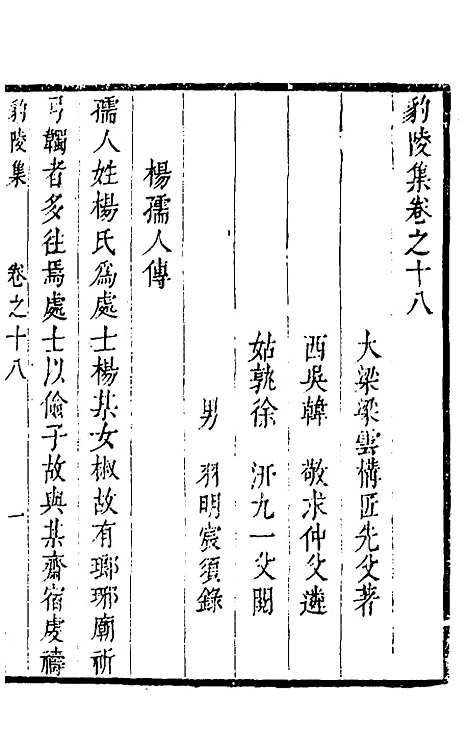 豹陵集卷之十八
大梁梁雲構匠先父著
西吳韓 敬求仲父選
姑孰徐 沂九一父閱
男 羽明宸須錄
楊孺人傳
孺人姓楊氏為處士楊某女椒故有瑯琊廟祈
弓韣者多往焉處士以儉子故與某齋宿虔禱
豹陵集 卷之十八 一